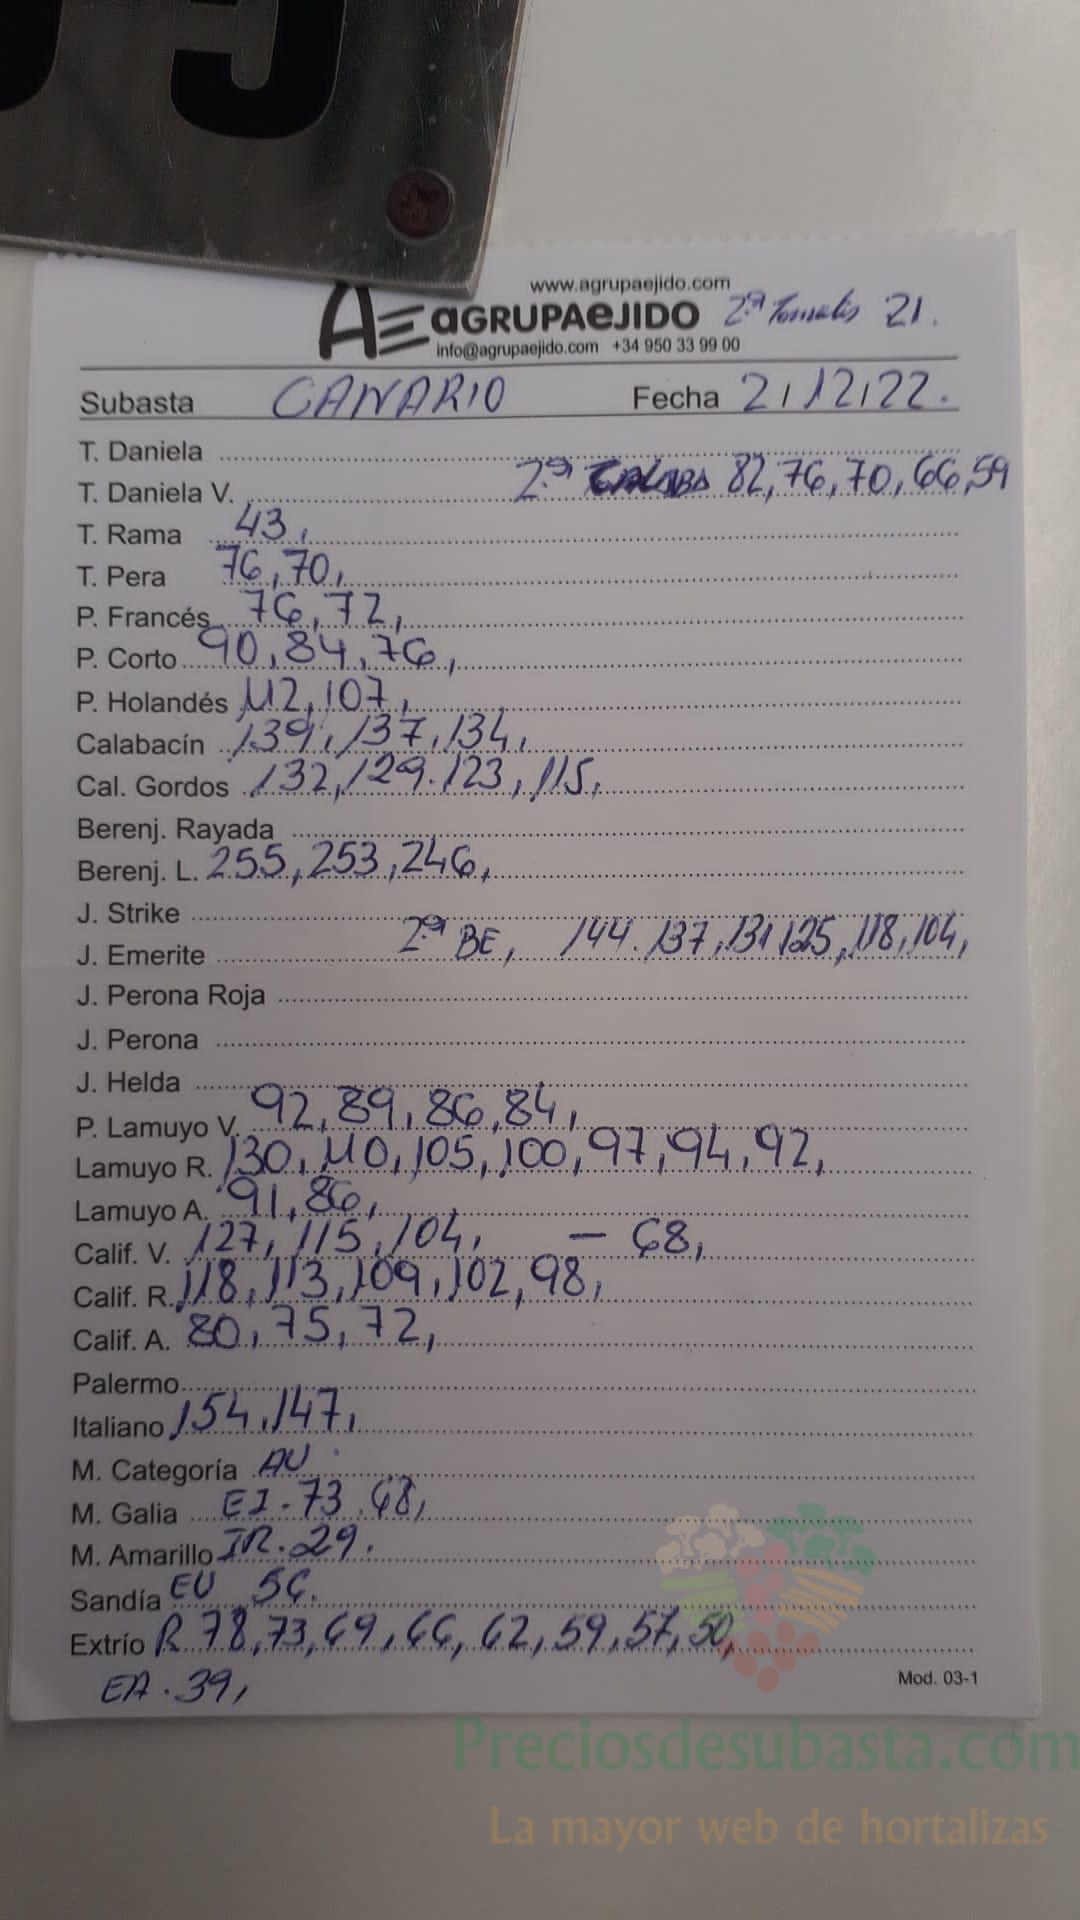 www.agrupaejido.com
AE aGRUPAeJIDO 2ª Tomates 21.
info@agrupaejido.com +34 950 33 99 00
Subasta CANARIO Fecha 2/12/22.
T. Daniela
T. Daniela V. 2ª CALABA 82,76,70,66,59
T. Rama 43,
T. Pera 76,70,
P. Francés 76,72,
P. Corto 90,84,76,
P. Holandés 112,107,
Calabacín 139,137,134,
Cal. Gordos 132,129.123,115,
Berenj. Rayada
Berenj. L. 255,253,246,
J. Strike
J. Emerite 2ª BE, 144.137,131,125,118,104,
J. Perona Roja
J. Perona
J. Helda
P. Lamuyo V. 92,89,86,84,
Lamuyo R. 130,110,105,100,97,94,92,
Lamuyo A. 91,86,
Calif. V. 127,115,104, — 68,
Calif. R. 118,113,109,102,98,
Calif. A. 80,75,72,
Palermo
Italiano 154,147,
M. Categoría AU
M. Galia EI-73,68,
M. Amarillo IR.29.
Sandía EU 56.
Extrío R 78,73,69,66,62,59,57,50,
EA.39,
Mod. 03-1
Preciosdesubasta.com
La mayor web de hortalizas